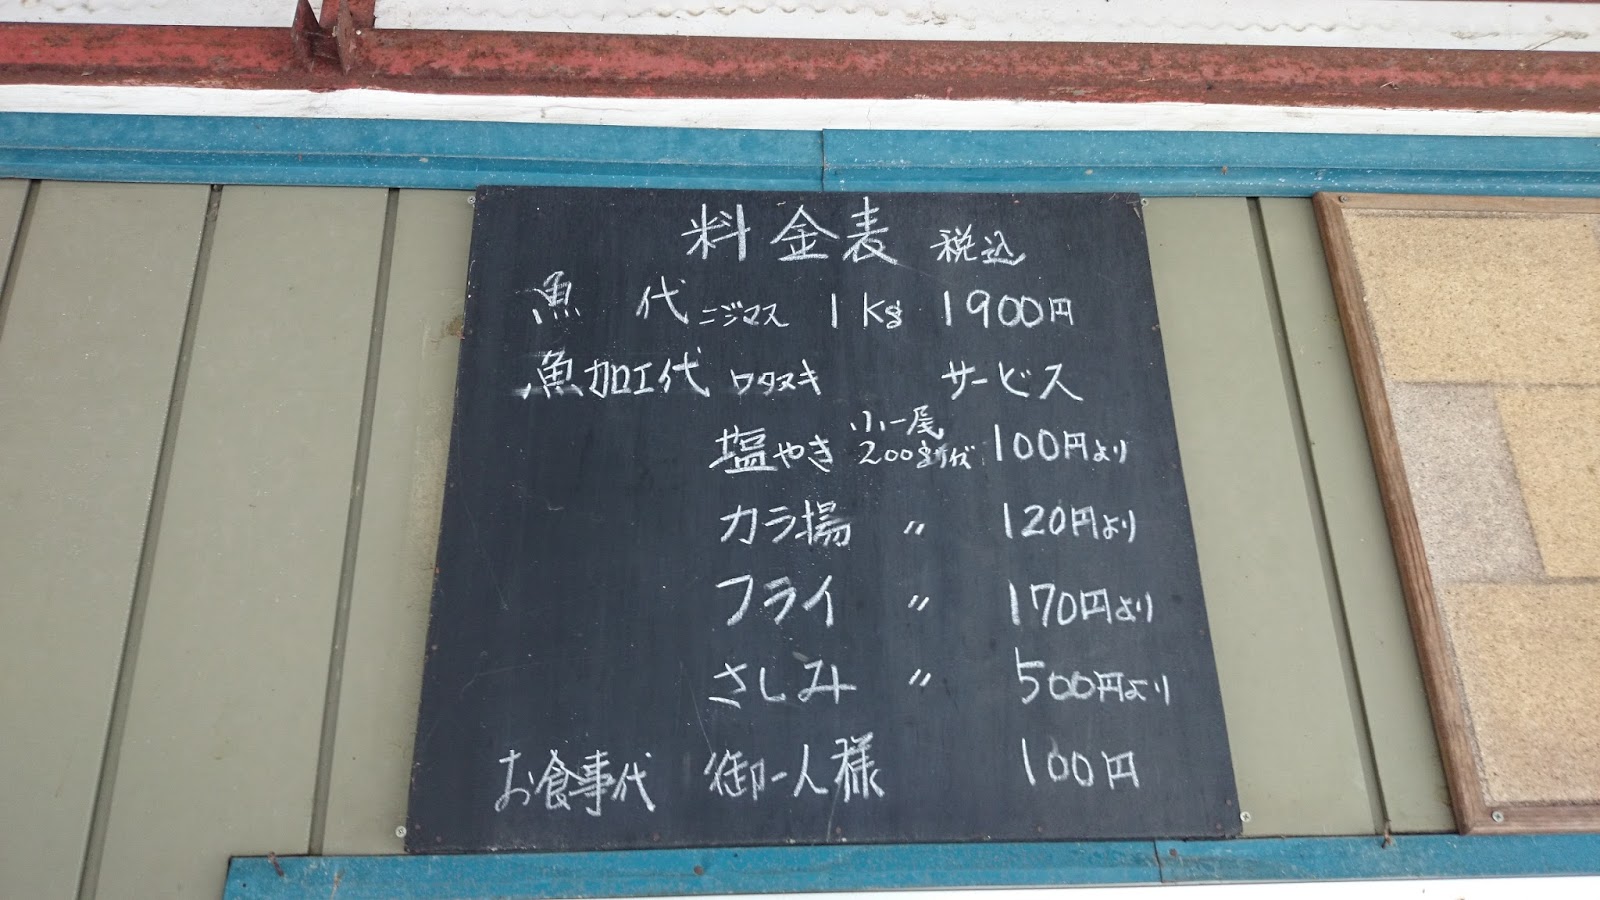 料金表 税込
魚 代 ニジマス 1Kg 1900円
魚加工代 ワタヌキ サービス
塩やき 小一尾 200g 100円より
カラ揚 〃 120円より
フライ 〃 170円より
さしみ 〃 500円より
お食事代 御一人様 100円